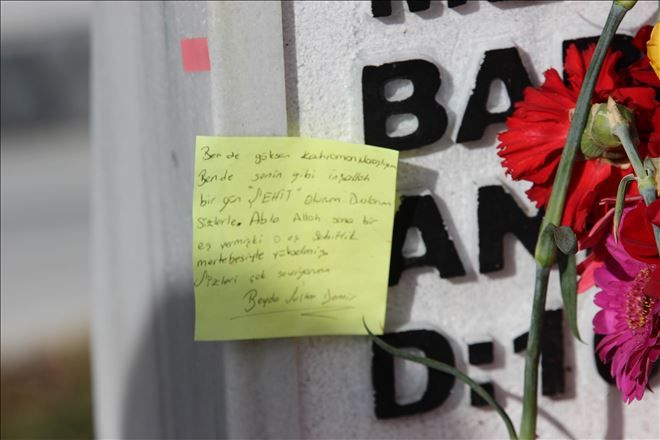 BA
AN
D:1
Ben de göksen kahramanmaraşlıyım
Bende senin gibi inşallah
bir gün "ŞEHİT" olurum. Dualarım
sizlerle. Abla Allah sana bir
eş vermişki o eş şehitlik
mertebesiyle yükselmiş
Sizleri çok seviyorum
Beyda